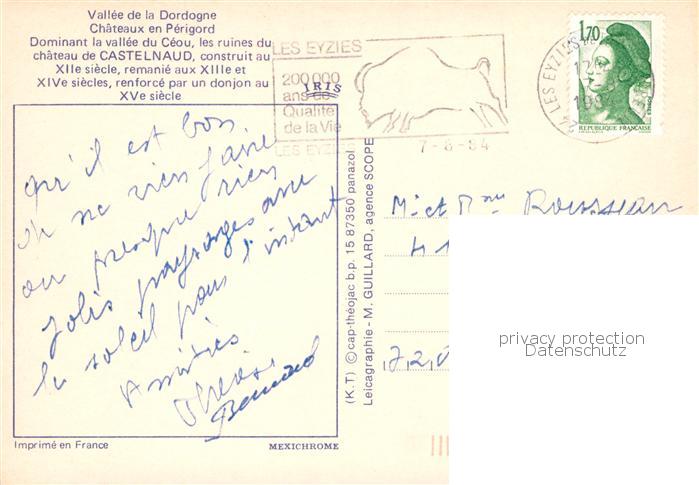 Vallée de la Dordogne
Châteaux en Périgord
Dominant la vallée du Céou, les ruines du
château de CASTELNAUD, construit au
XIIe siècle, remanié aux XIIIe et
XIVe siècles, renforcé par un donjon au
XVe siècle
LES EYZIES
200 000
ans de
Qualité
de la Vie
LES EYZIES
IRIS
7-8-84
LES EYZIES
1,70
REPUBLIQUE FRANÇAISE
qu'il est bon
de ne rien faire
ou presque rien
Jolis paysages avec
le soleil pour l'instant
Amitiés
Bernard
(K.T) © cap-théojac b.p. 15 87350 panazol
Leicagraphie - M. GUILLARD, agence SCOPE
M. et Mme Rousseau
41
72
privacy protection
Datenschutz
Imprimé en France
MEXICHROME